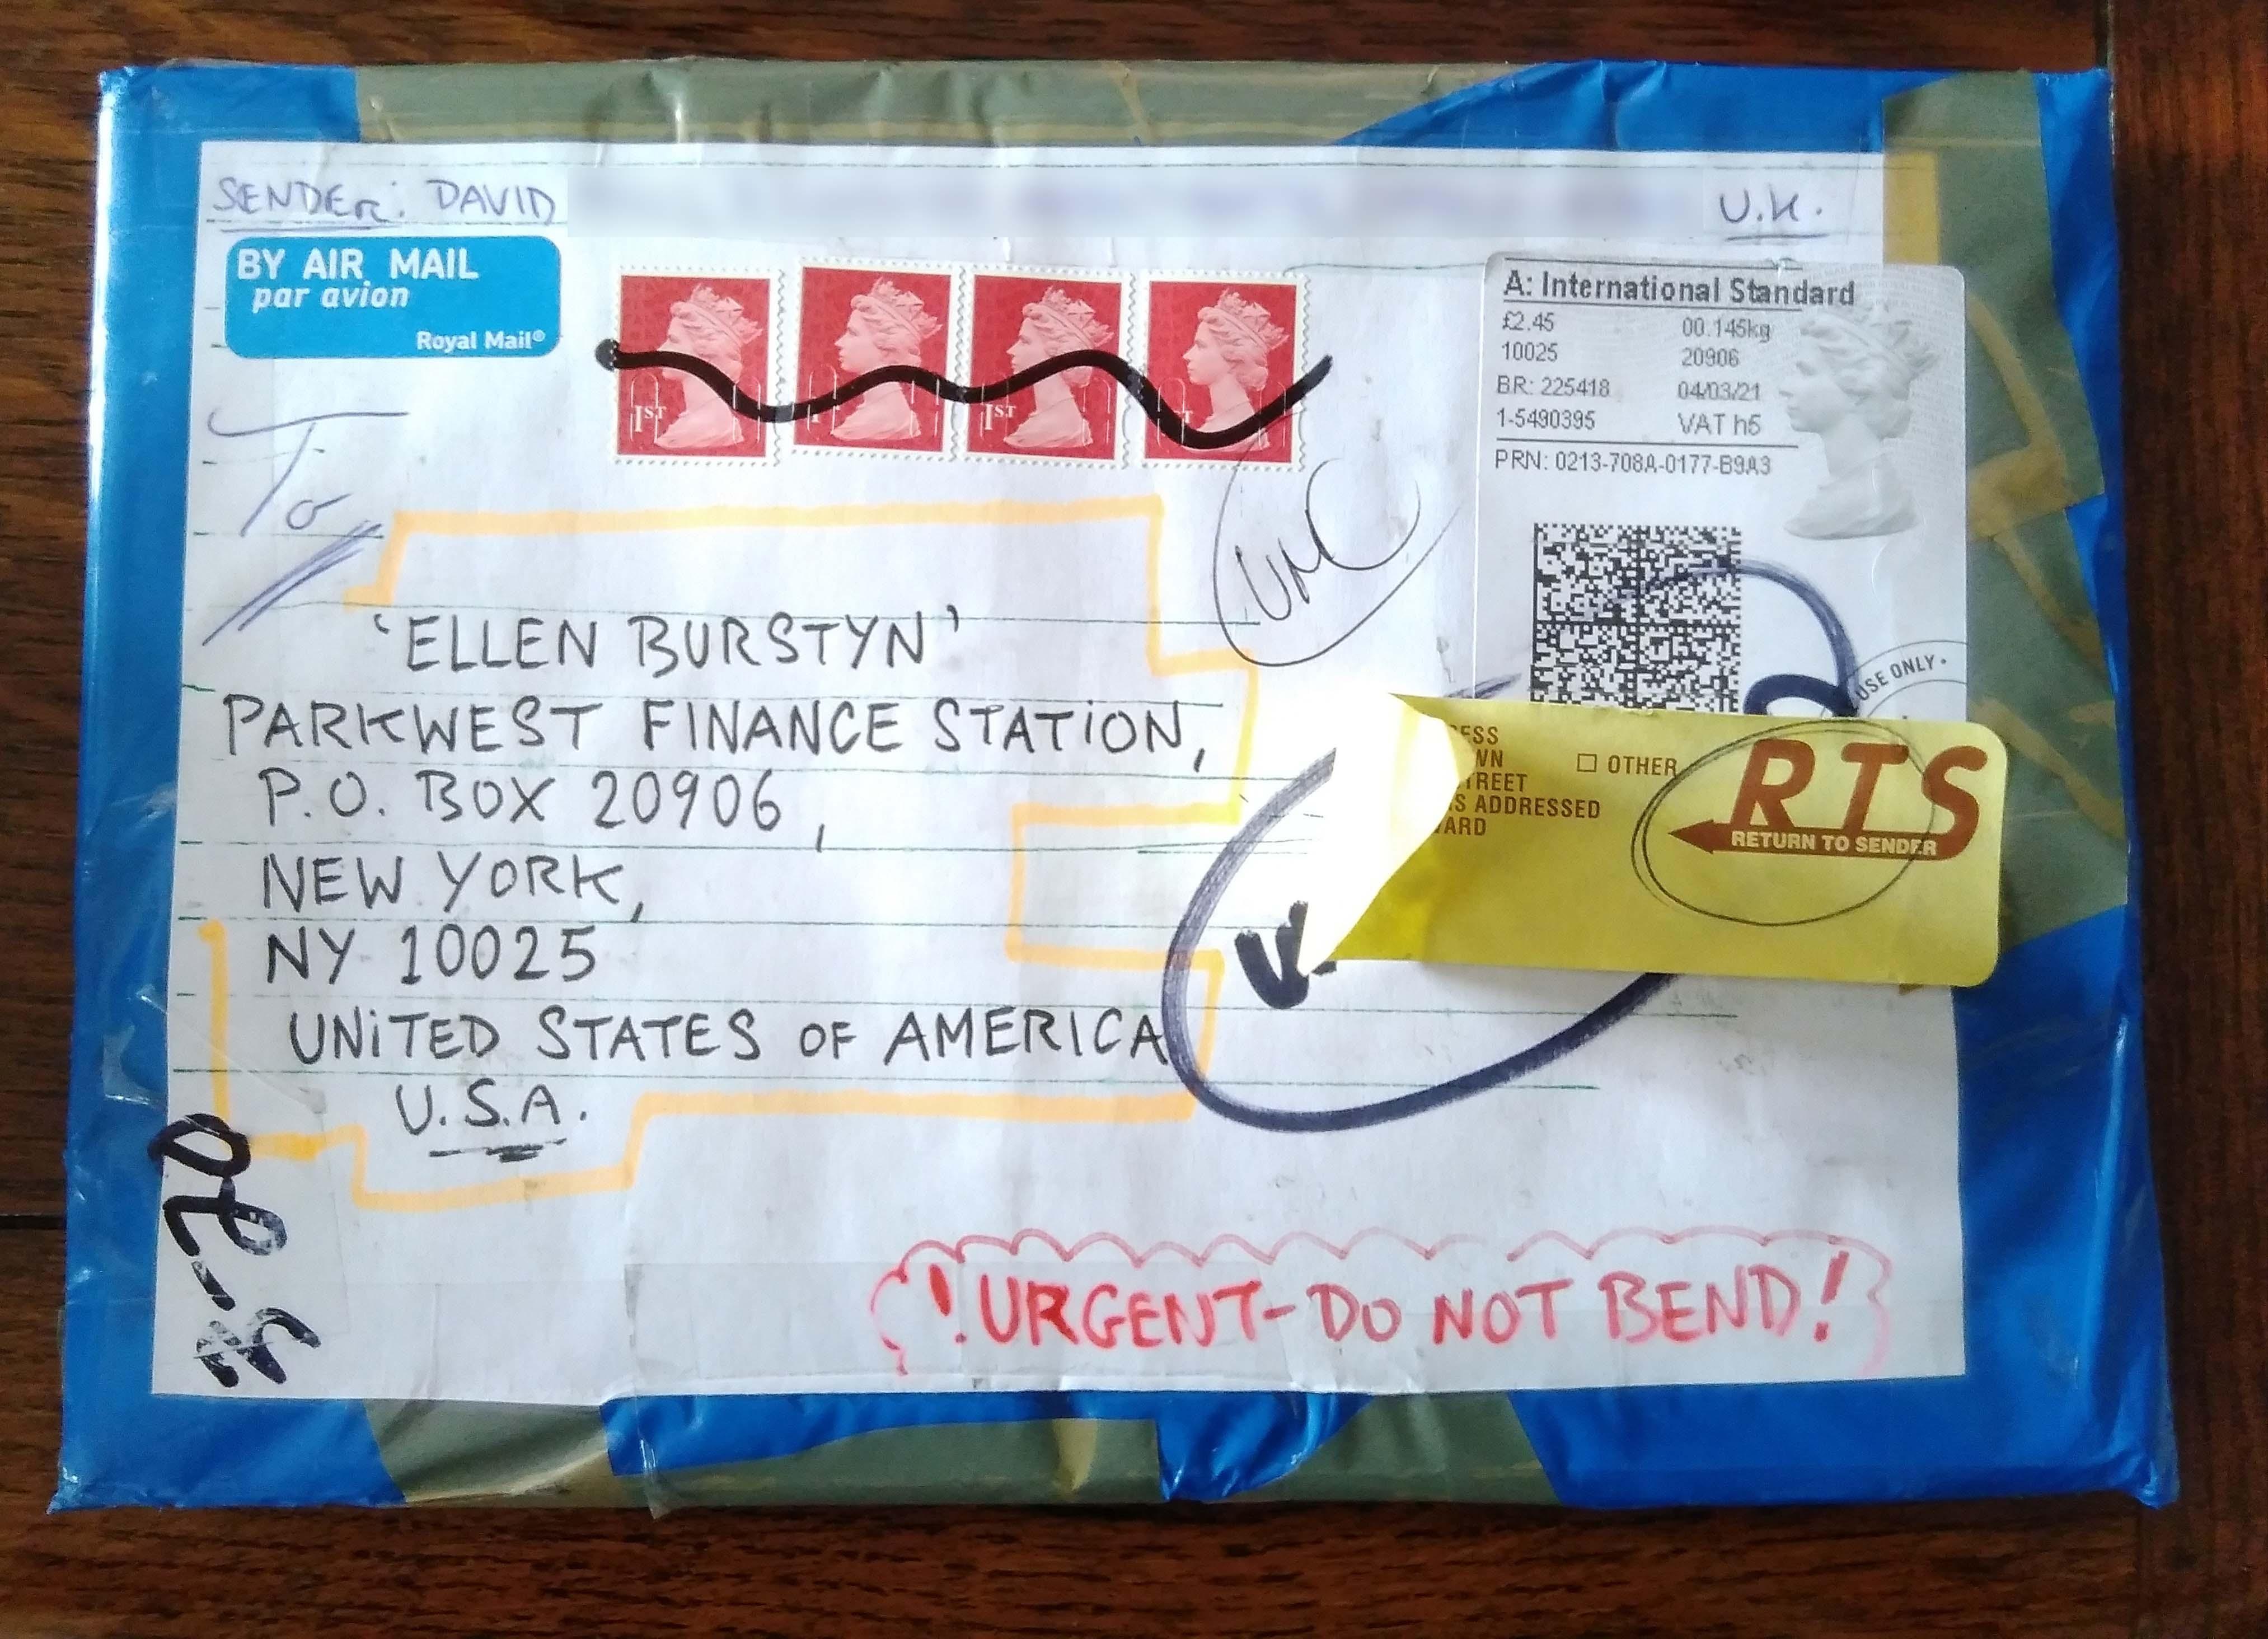 SENDER: DAVID
U.K.
BY AIR MAIL
par avion
Royal Mail®
1ST
1ST
A: International Standard
£2.45 00.145kg
10025 20906
BR: 225418 04/03/21
1-5490395 VAT h5
PRN: 0213-708A-0177-B9A3
USE ONLY •
To
UNC
'ELLEN BURSTYN'
PARKWEST FINANCE STATION,
P.O. BOX 20906,
NEW YORK,
NY 10025
UNITED STATES OF AMERICA
U.S.A.
OTHER
ADDRESSED
RTS
RETURN TO SENDER
! URGENT - DO NOT BEND!